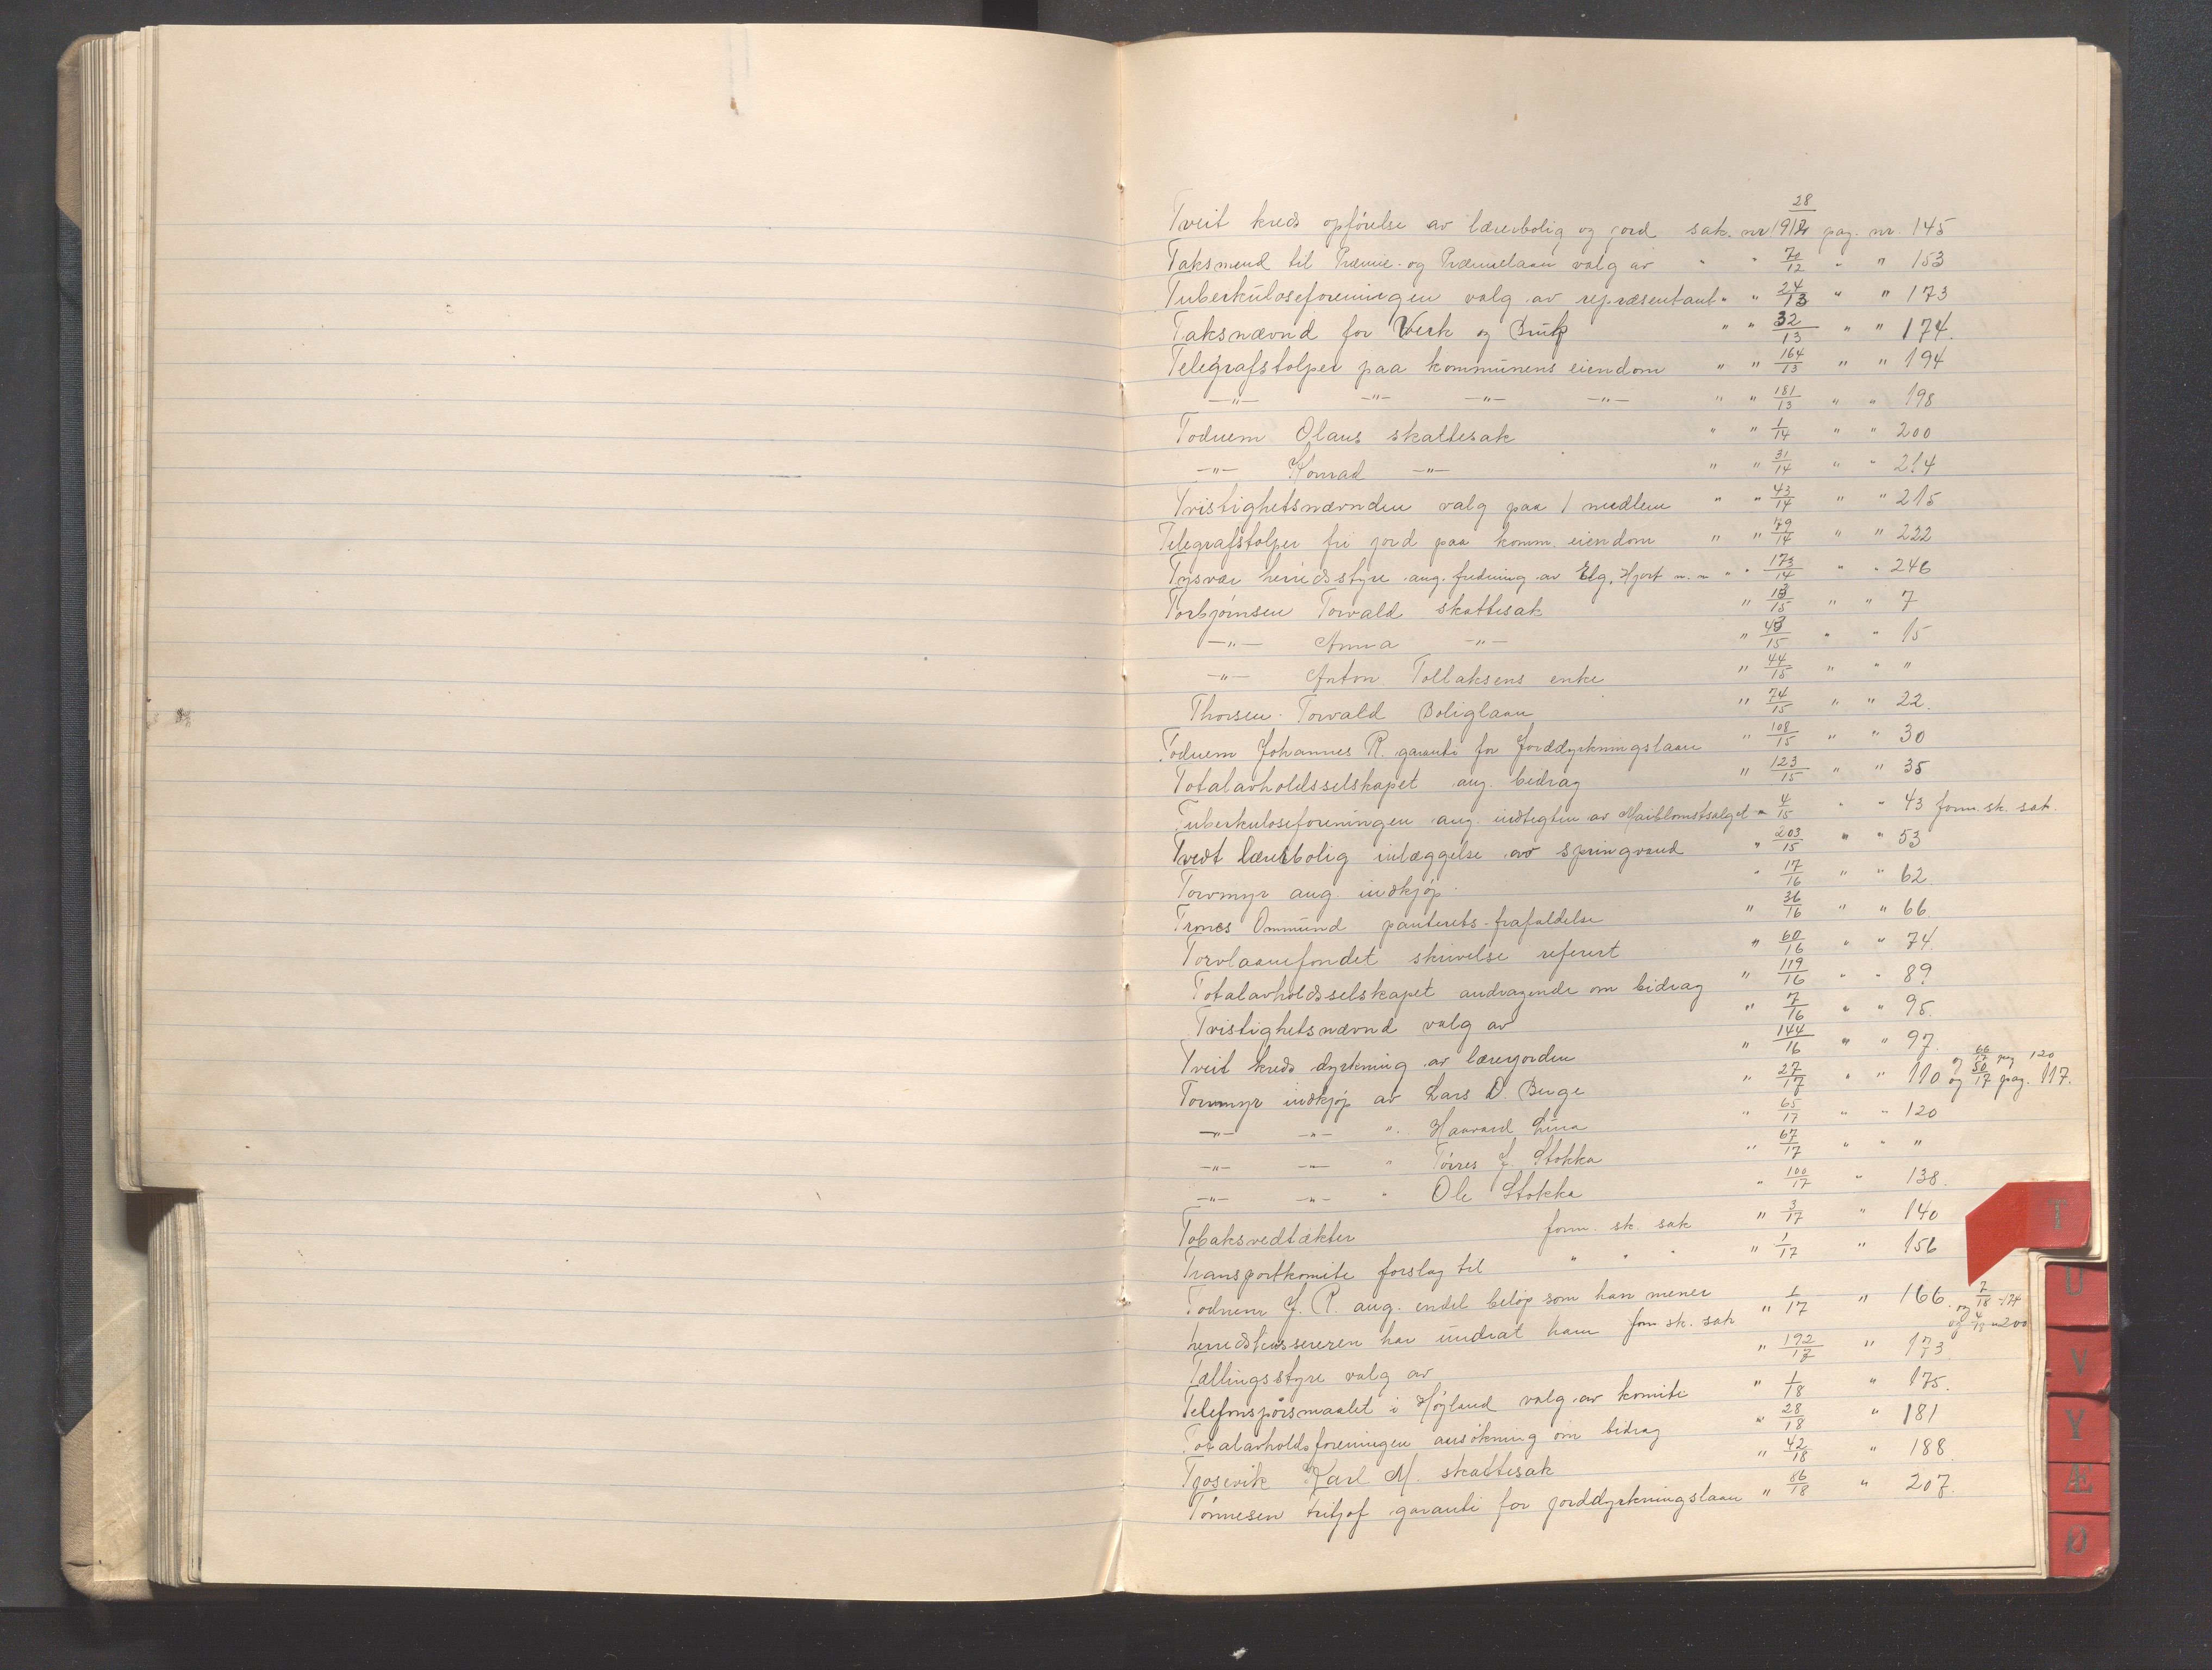 28
Tveit kreds opførelse av lærerbolig og jord sak. nr. 1912 pag. nr. 145
Taksmend til Præmie- og Præmielaan valg av " " 70/12 " " 153
Tuberkuloseforeningen valg av repræsentant " " 24/13 " " 173
Taksnævnd for Verk og Bruk " " 32/13 " " 174.
Telegrafstolper paa kommunens eiendom " " 164/13 " " 194
—"— —"— —"— —"— " " 181/13 " " 198
Toduem Olaus skattesak " " 1/14 " " 200
—"— Konrad —"— " " 31/14 " " 214
Tvistighetsnævnden valg paa 1 medlem " " 43/14 " " 215
Telegrafstolper fri jord paa komm. eiendom " " 79/14 " " 222
Tysvær herredsstyre ang. fredning av Elg, Hjort m. m " " 173/14 " " 246
Torbjørnsen Torvald skattesak " 13/15 " " 7
—"— Anna —"— " 43/15 " " 15
—"— Anton Tollaksens enke " 44/15 " " "
Thorsen Torvald Boliglaan " 74/15 " " 22.
Toduem Johannes R. garanti for Jorddyrkningslaan " 108/15 " " 30
Totalavholdsselskapet ang. bidrag " 123/15 " " 35
Tuberkuloseforeningen ang. indtægten av Maiblomstsalget " 4/15 " " 43 form. sk. sak.
Tvedt lærerbolig inlæggelse av springvand " 203/15 " " 53
Torvmyr ang. indkjøp " 17/16 " " 62
Trones Ommund panterets-frafaldelse " 36/16 " " 66
Torvlaanefondet skrivelse referert " 60/16 " " 74
Totalavholdsselskapet andragende om bidrag " 119/16 " " 89
Tvistighetsnævnd valg av " 7/16 " " 95.
Tveit kreds dyrkning av lærerjorden " 144/16 " " 97.
og 66/17 pag 120
Torvmyr indkjøp av Lars D. Berge " 27/17 " " 110 og 50/17 pag. 117.
—"— —"— " Haavard Lura " 65/17 " " 120
—"— —"— " Tørres J. Stokka " 67/17 " " "
—"— —"— " Ole Stokka " 100/17 " 138.
Tobaksvedtækter form. sk. sak " 3/17 " 140
Transportkomite forslag til " " " " 1/17 " 156
Toduem J. R. ang. endel beløp som han mener
herredskassereren har undrat ham form sk. sak " 1/17 " 166. og 7/18 - 174
og 4/18 - 200
Tællingsstyre valg av " 192/17 " 173.
Telefonspørsmaalet i Høyland valg av komite " 1/18 " 175.
Totalavholdsforeningen ansøkning om bidrag " 28/18 " 181
Tjosevik Karl M. skattesak " 42/18 " 188.
Tønnesen Fritjof garanti for jorddyrkningslaan " 86/18 " 207.
T
U
V
Y
Æ
Ø